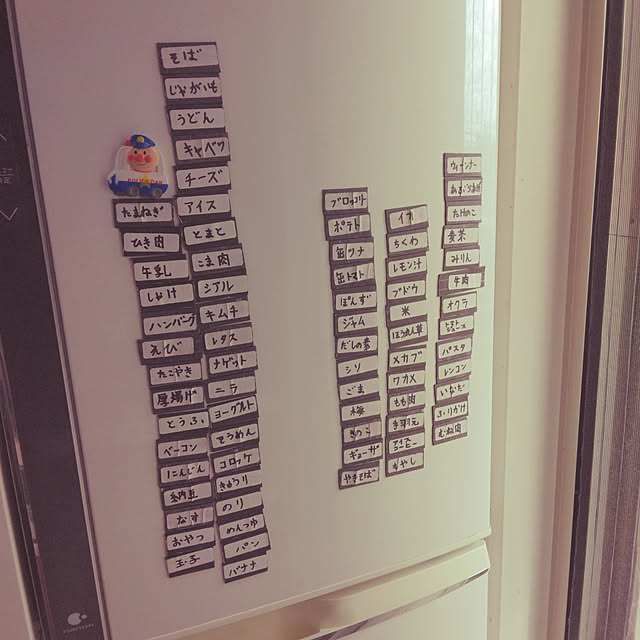 そば
じゃがいも
うどん
キャベツ
チーズ
アイス
とまと
こま肉
シアル
キムチ
レタス
ナゲット
ニラ
ヨーグルト
そうめん
コロッケ
きゅうり
のり
めんつゆ
パン
バナナ
たまねぎ
ひき肉
牛乳
しゃけ
ハンバーグ
えび
たこやき
厚揚げ
とうふ
ベーコン
にんじん
納豆
なす
おやつ
玉子
ブロッコリー
ポテト
缶ツナ
缶トマト
ぽんず
ジャム
だしの素
シソ
ごま
梅
きのこ
ギョーザ
やきそば
イカ
ちくわ
レモン汁
ブドウ
米
ほうれん草
メカブ
ワカメ
もも肉
手羽元
もやし
ウィンナー
たけのこ
麦茶
みりん
牛肉
オクラ
パスタ
レンコン
いなだ
ふりかけ
むね肉